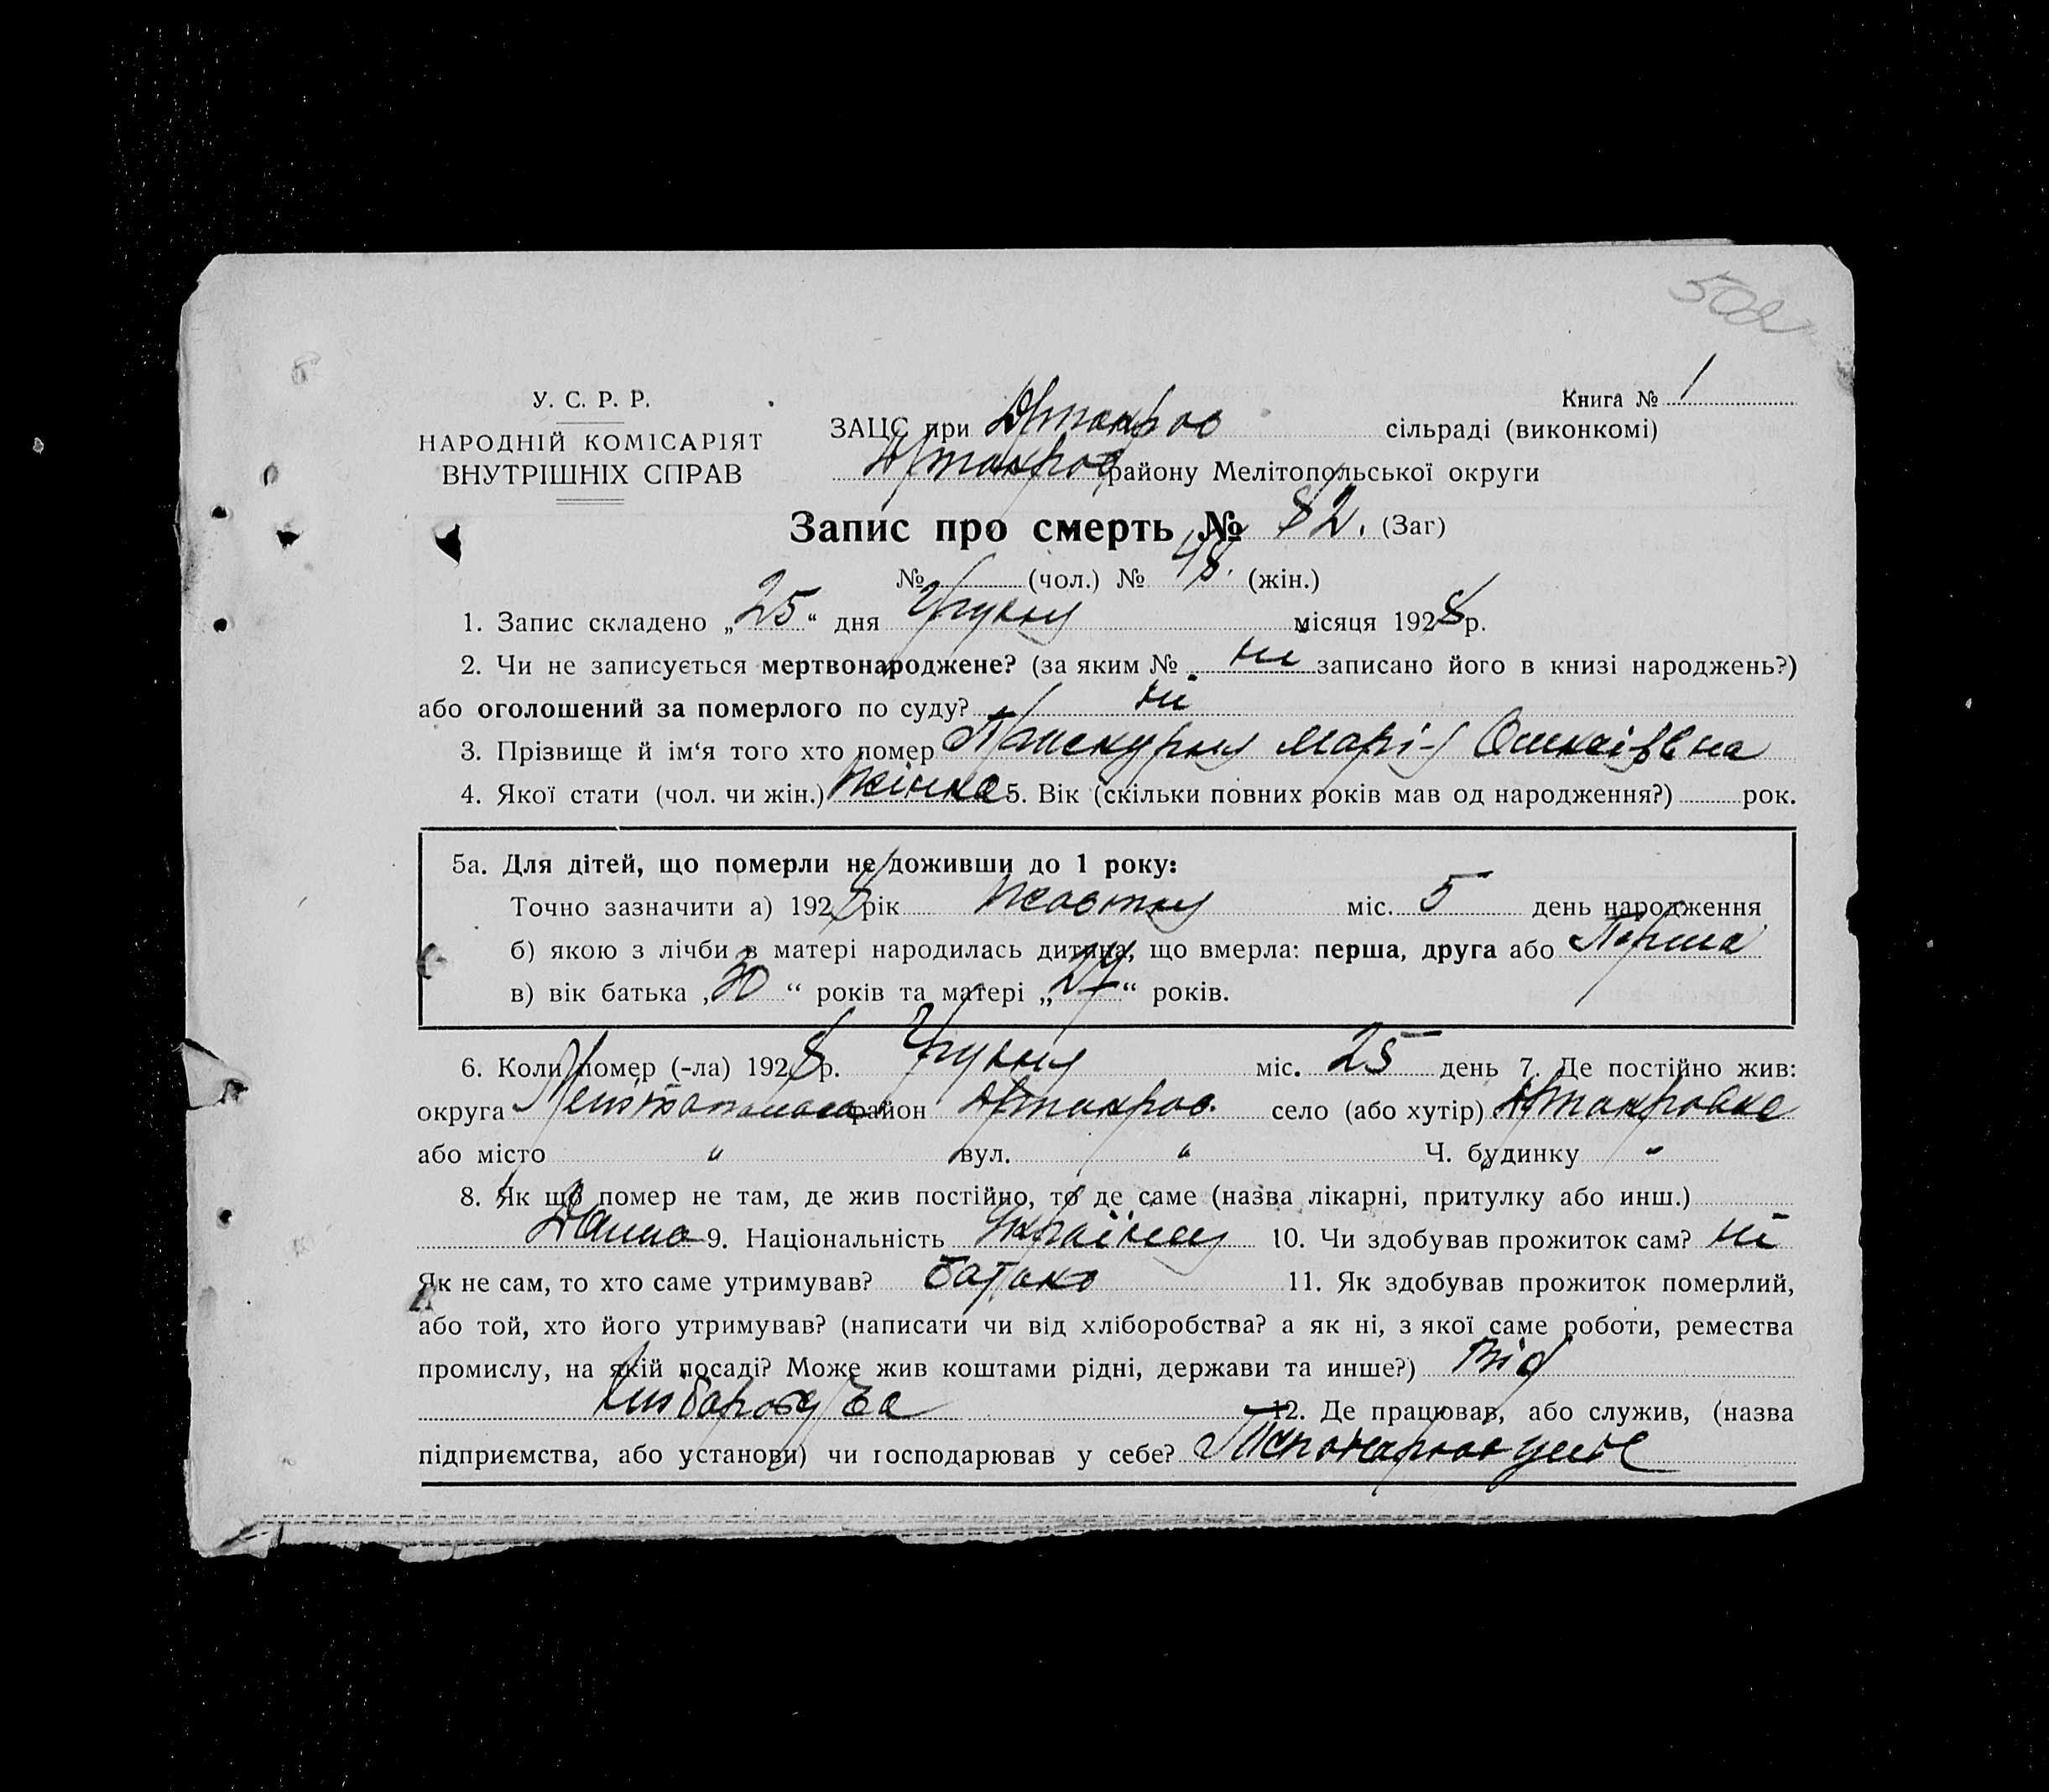 У. С. Р. Р.
НАРОДНІЙ КОМІСАРІЯТ
ВНУТРІШНІХ СПРАВ
Книга № 1
ЗАЦС при сільраді (виконкомі)
району Мелітопольської округи
Запис про смерть № 82. (Заг)
№ (чол.) № 48. (жін.)
1. Запис складено „25“ дня Грудня місяця 1928 р.
2. Чи не записується мертвонароджене? (за яким № ні записано його в книзі народжень?)
або оголошений за померлого по суду? ні
3. Прізвище й ім‘я того хто помер Марія
4. Якої стати (чол. чи жін.) Жінка 5. Вік (скільки повних років мав од народження?) рок.
5а. Для дітей, що померли не доживши до 1 року:
Точно зазначити а) 1928 рік Жовтня міс. 5 день народження
б) якою з лічби в матері народилась дитина, що вмерла: перша, друга або Перша
в) вік батька „30“ років та матері „24“ років.
6. Коли помер (-ла) 1928 р. Грудня міс. 25 день 7. Де постійно жив:
округа район село (або хутір)
або місто " вул. " Ч. будинку "
8. Як що помер не там, де жив постійно, то де саме (назва лікарні, притулку або инш.)
Дома 9. Національність 10. Чи здобував прожиток сам? ні
Як не сам, то хто саме утримував? батько 11. Як здобував прожиток померлий,
або той, хто його утримував? (написати чи від хліборобства? а як ні, з якої саме роботи, ремества
промислу, на якій посаді? Може жив коштами рідні, держави та инше?) Від
12. Де працював, або служив, (назва
підприємства, або установи) чи господарював у себе?